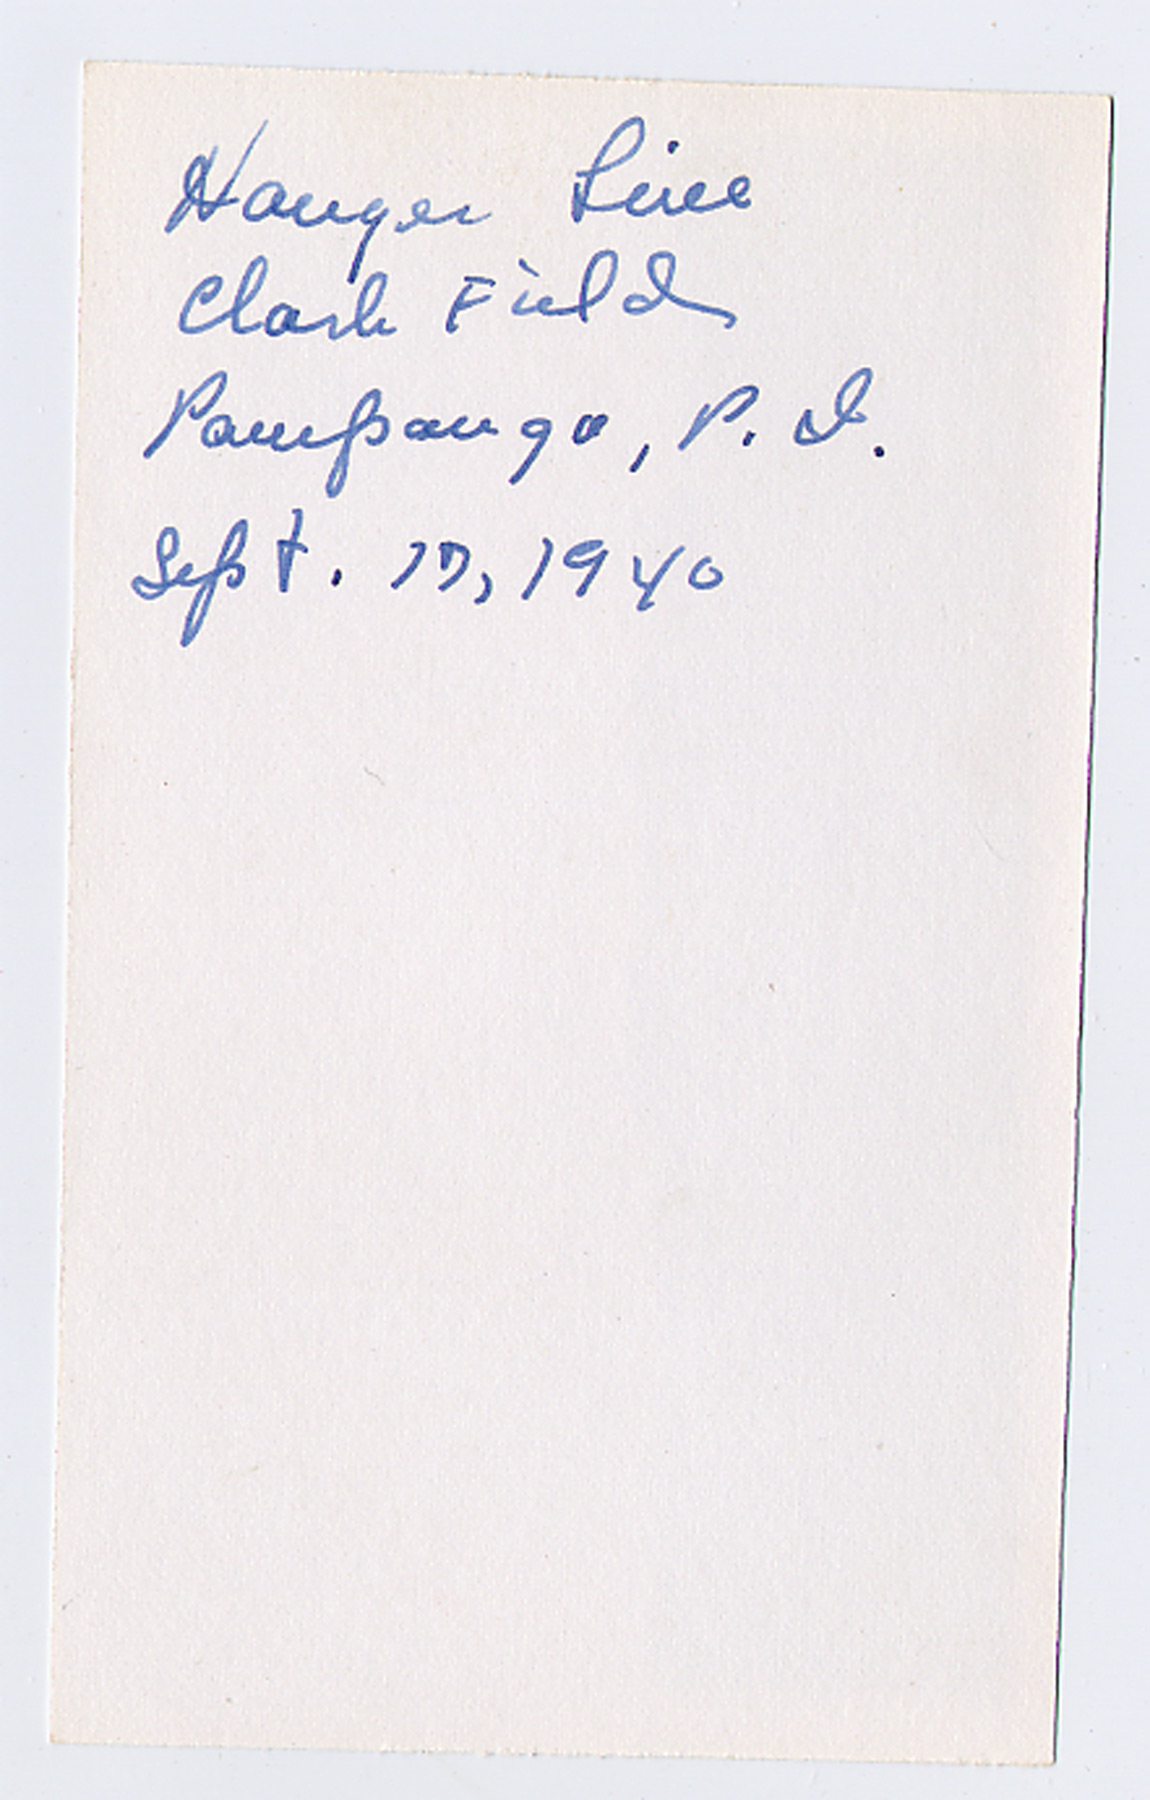 Hanger Line
Clark Field
Pampanga, P. I.
Sept. 17, 1940